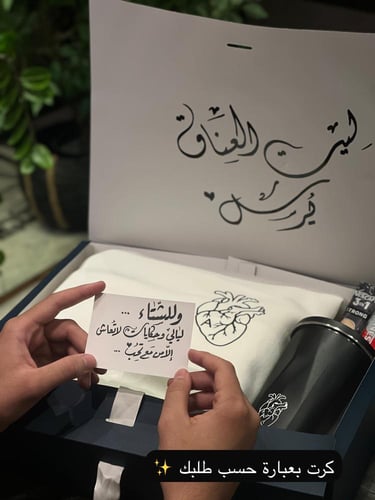 ليت العناق
يُرسل
وللشتاء ...
ليالي وحكايات لا تُعاش
إلا من مع تُحب ...
3in1
STRONG
كرت بعبارة حسب طلبك ✨